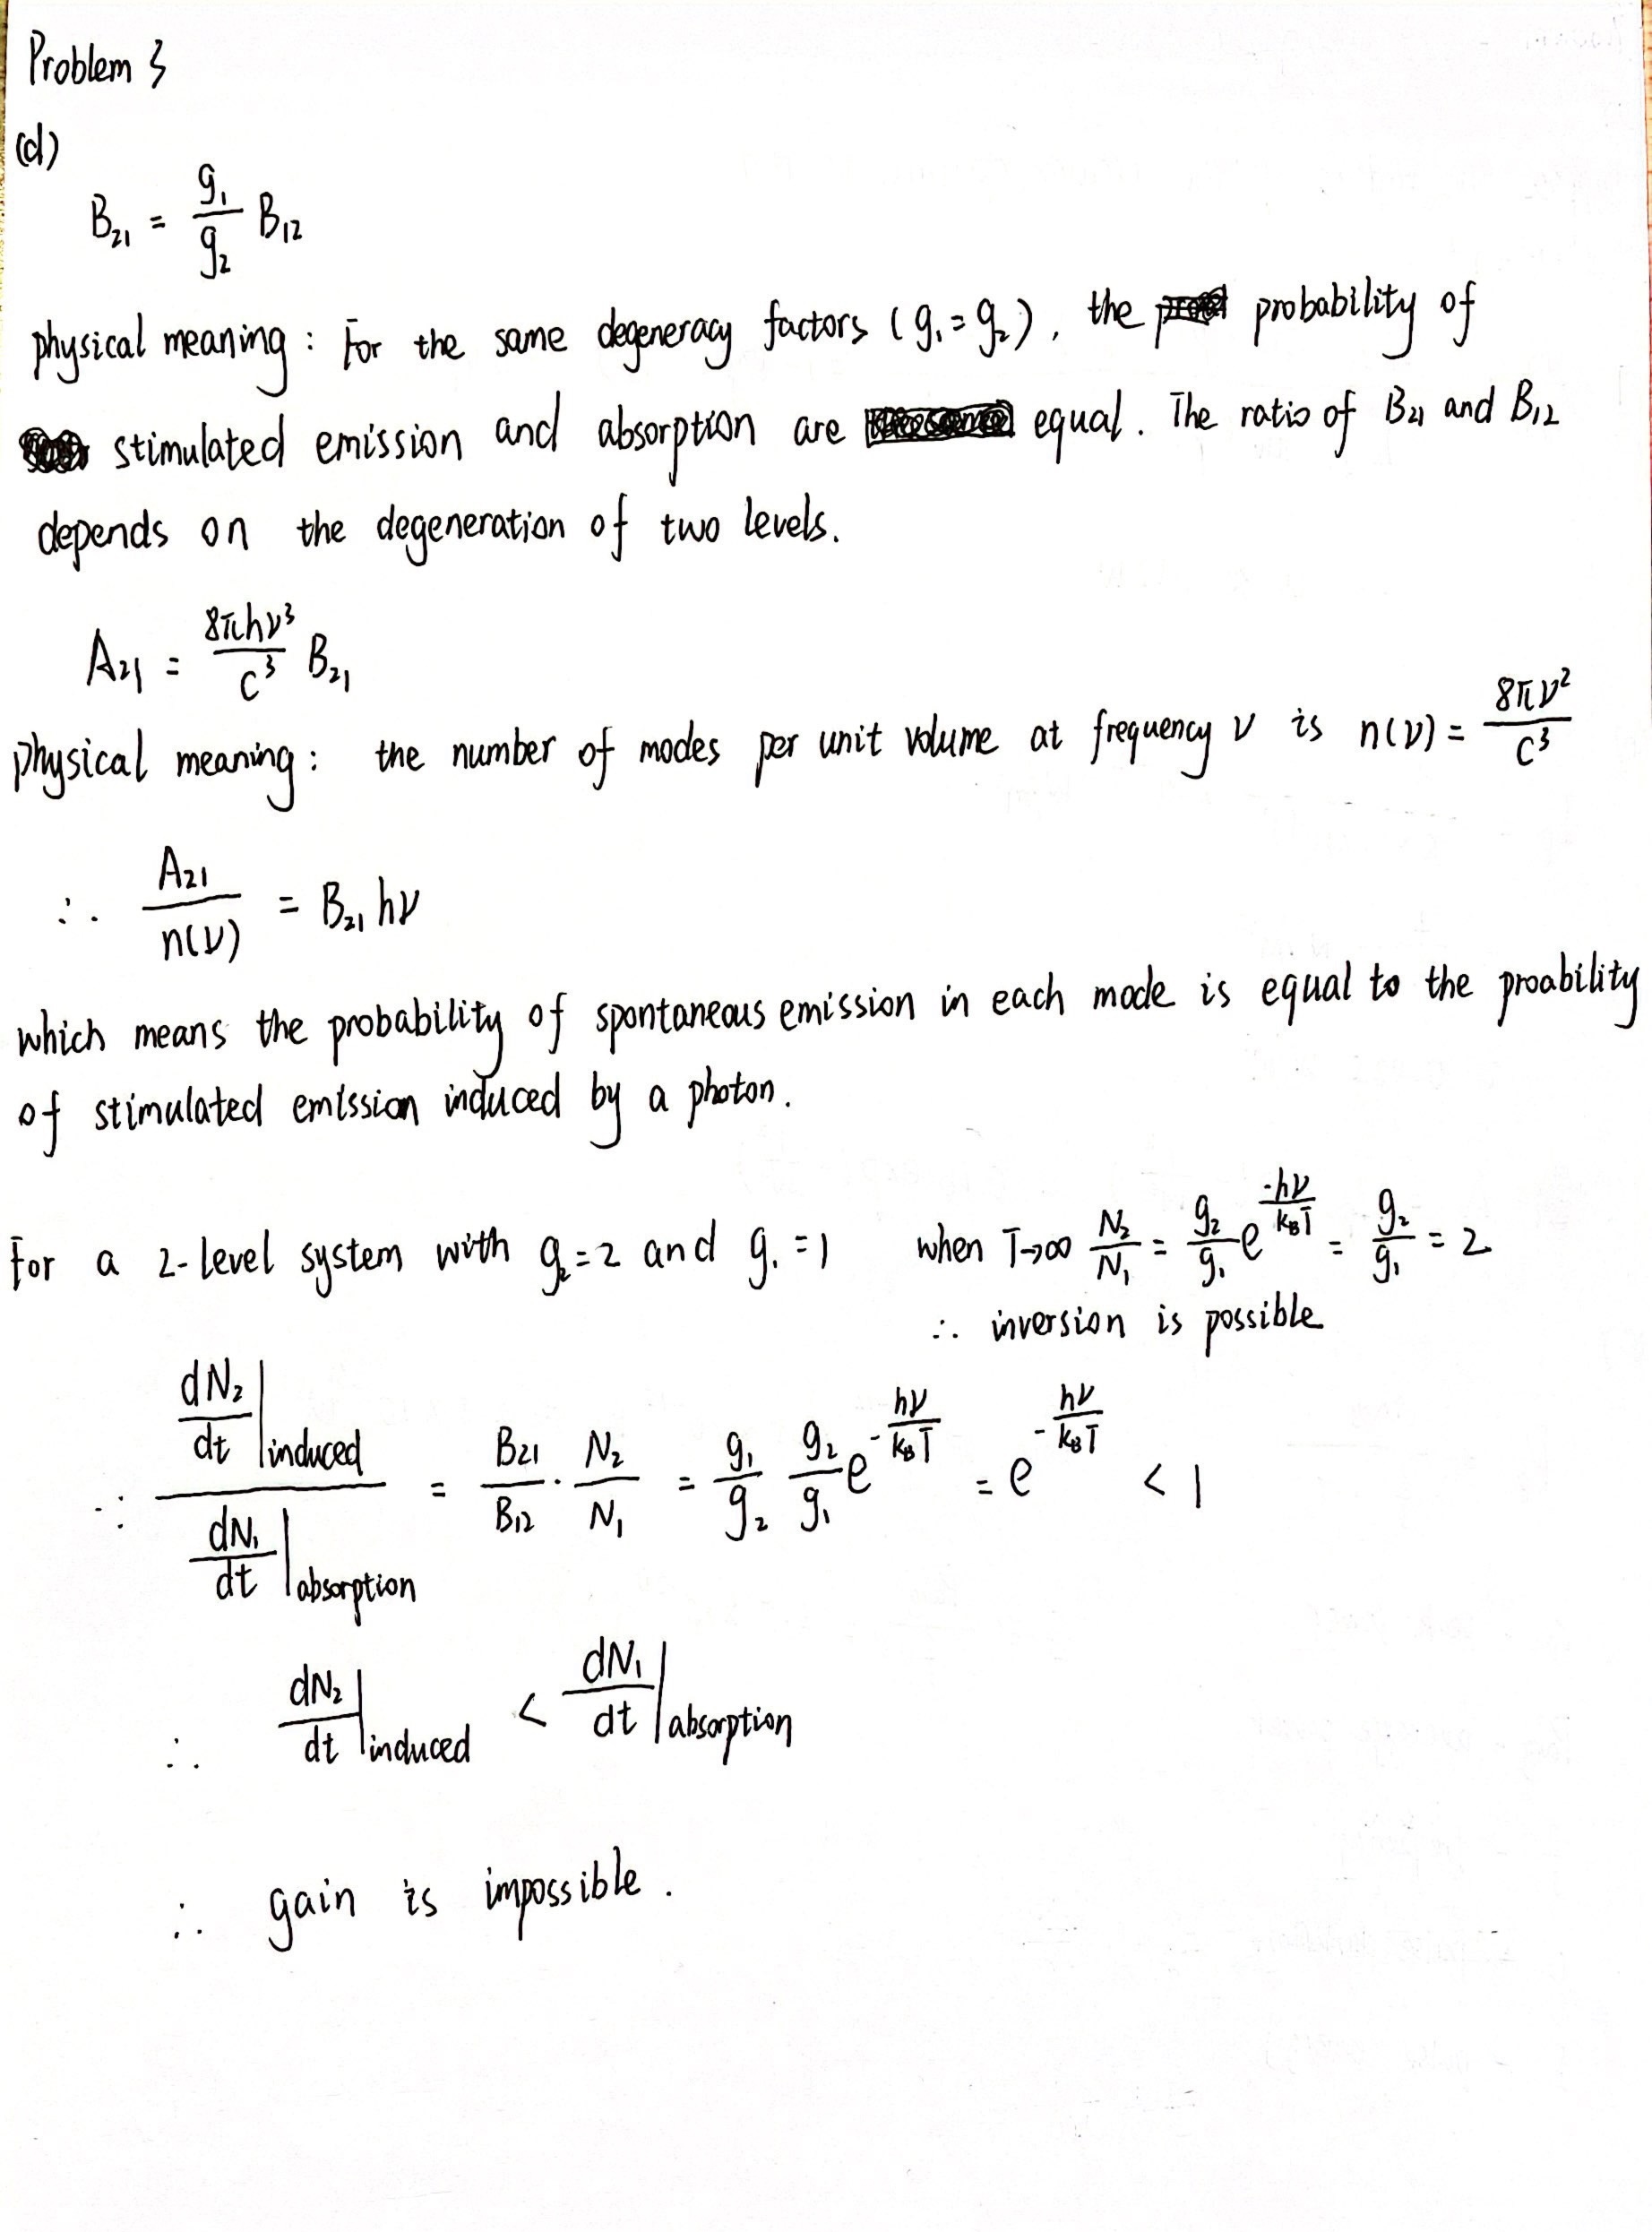 Problem 3
(d)
B₂₁ = g₁/g₂ B₁₂
physical meaning : For the same degeneracy factors ( g₁ = g₂ ) , the probability of
stimulated emission and absorption are equal . The ratio of B₂₁ and B₁₂
depends on the degeneration of two levels.
A₂₁ = 8πhν³/c³ B₂₁
physical meaning : the number of modes per unit volume at frequency ν is n(ν) = 8πν²/c³
∴ A₂₁/n(ν) = B₂₁ hν
which means the probability of spontaneous emission in each mode is equal to the proability
of stimulated emission induced by a photon.
For a 2-level system with g₂ = 2 and g₁ = 1 when T→∞ N₂/N₁ = g₂/g₁ e^(-hν/k_BT) = g₂/g₁ = 2
∴ inversion is possible
∵ (dN₂/dt |induced) / (dN₁/dt |absorption) = B₂₁/B₁₂ · N₂/N₁ = g₁/g₂ g₂/g₁ e^(-hν/k_BT) = e^(-hν/k_BT) < 1
∴ dN₂/dt |induced < dN₁/dt |absorption
∴ gain is impossible .